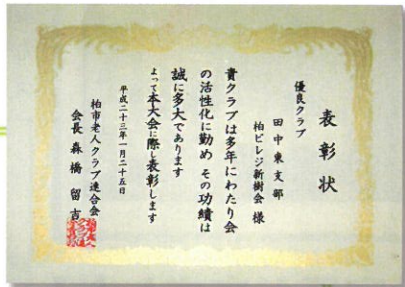 表彰状
優良クラブ
田中東支部
柏ビレジ新樹会 様
貴クラブは多年にわたり会
の活性化に勤め その功績は
誠に多大であります
よって本大会に際し表彰します
平成二十三年一月二十五日
柏市老人クラブ連合会
会長 森橋 留吉